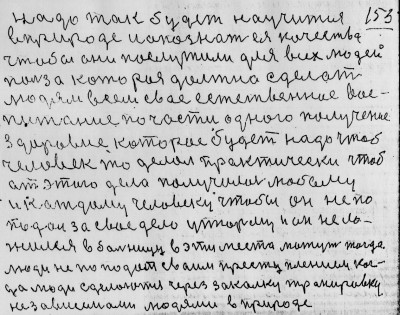 надо так будет научится 153
в природе и апознат ея качества
чтобы они послужили для всих людей
полза которая должна сделат
людям всем свае естественное вос-
питание по части одного получение
здоровие которое будет надо чтоб
человек то делал практически чтоб
ат этого дела получилос любому
и каждому человеку чтобы он не по
подал за свае дело у тюрму и он не ло-
жился в болницу в эти места могут тогда
люди не поподат сваим преступлением ког-
да люди сделаются через закалку тренировку
независимами людями в природе